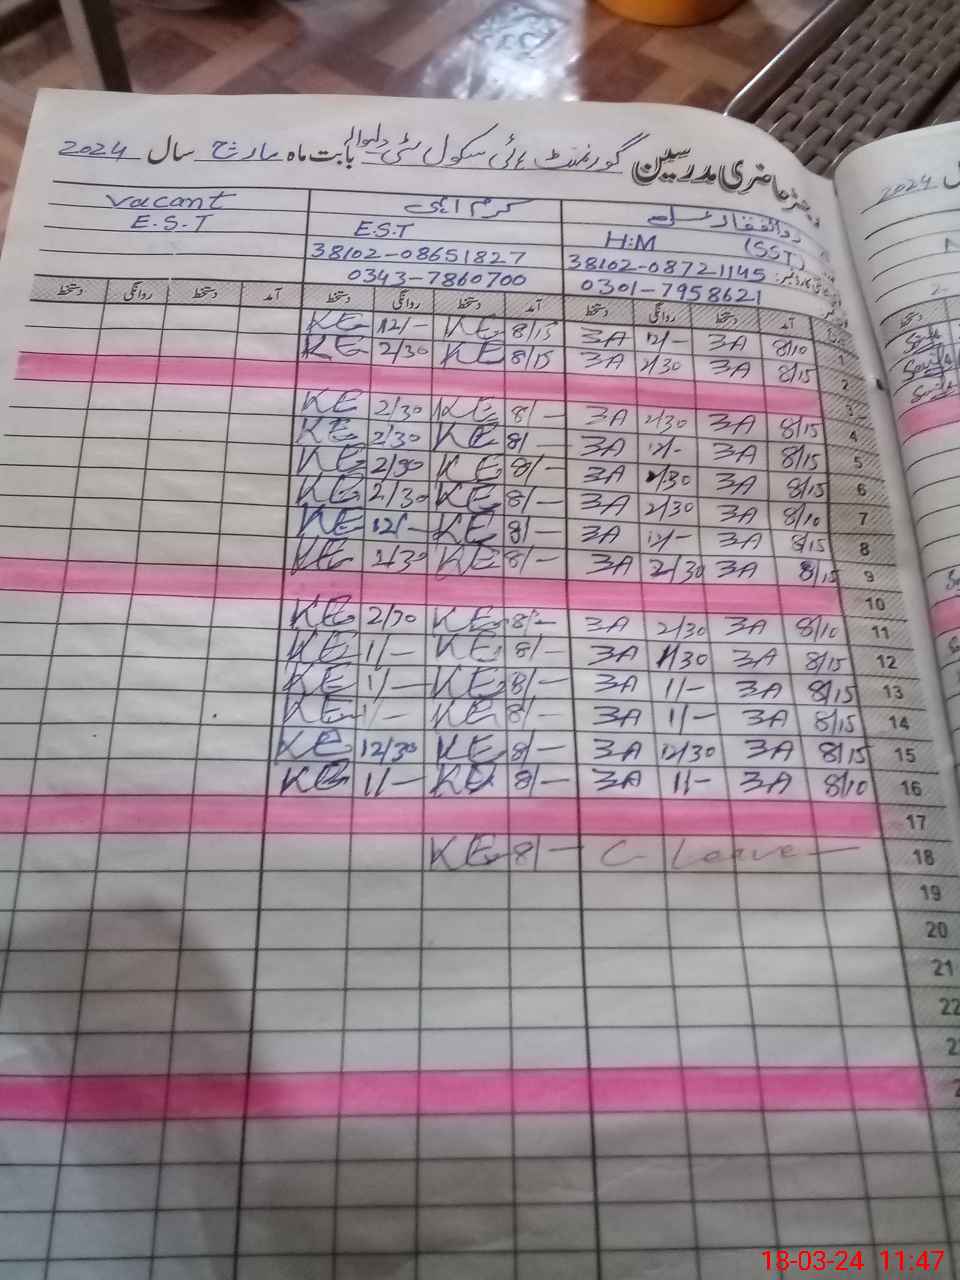 رجسٹر حاضری مدرسین گورنمنٹ ہائی سکول بابت ماہ مارچ سال 2024
Vacant
E.S.T
E.S.T
38102-08651827
0343-7860700
H.M (SST)
38102-08721145
0301-7958621
آمد دستخط روانگی دستخط آمد دستخط روانگی دستخط آمد دستخط روانگی دستخط
1 8/10 ZA 12/- ZA 8/15 KE 12/- KE
2 8/15 ZA 2/30 ZA 8/15 KE 2/30 KE
3
4 8/15 ZA 2/30 ZA 8/- KE 2/30 KE
5 8/15 ZA 12/- ZA 8/- KE 2/30 KE
6 8/15 ZA 2/30 ZA 8/- KE 2/30 KE
7 8/10 ZA 2/30 ZA 8/- KE 2/30 KE
8 8/15 ZA 12/- ZA 8/- KE 12/- KE
9 8/15 ZA 2/30 ZA 8/- KE 2/30 KE
10
11 8/10 ZA 2/30 ZA 8/- KE 2/30 KE
12 8/15 ZA 1/30 ZA 8/- KE 1/- KE
13 8/15 ZA 1/- ZA 8/- KE 1/- KE
14 8/15 ZA 1/- ZA 8/- KE 1/- KE
15 8/15 ZA 12/30 ZA 8/- KE 12/30 KE
16 8/10 ZA 1/- ZA 8/- KE 1/- KE
17
18 C Leave 8/- KE
19
20
21
22
2024
18-03-24 11:47